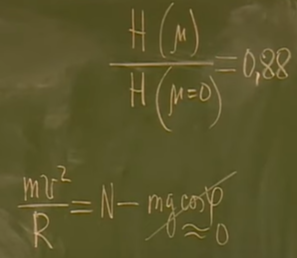 H(μ)/H(μ=0)=0,88
mv²/R=N-mg cosφ≈0